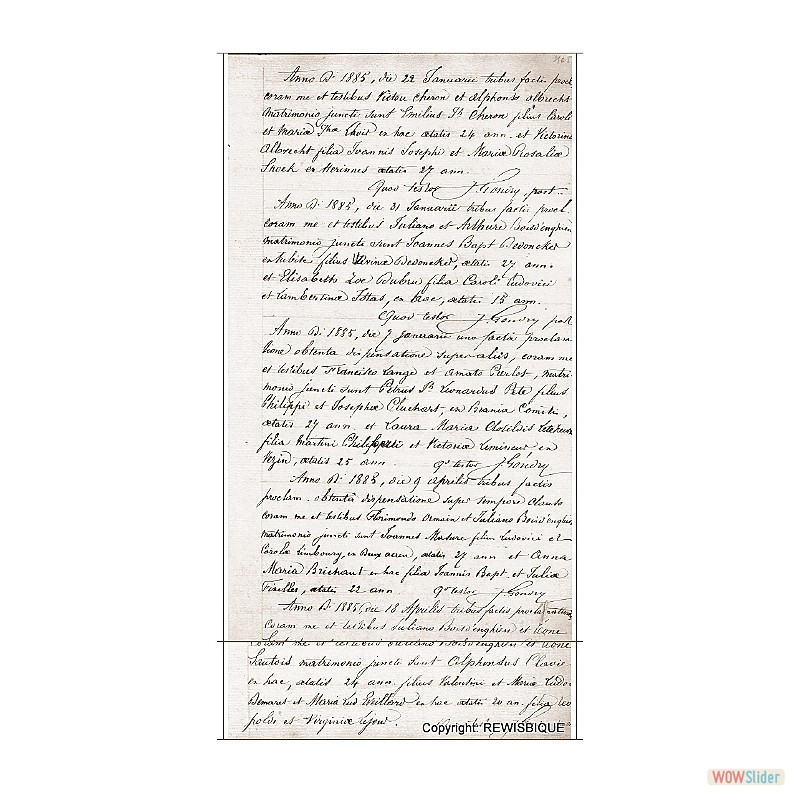 Anno D. 1885, die 22 Januarii tribus factis procl
coram me et testibus Victor Cheron et Alphonso Albrecht
matrimonio juncti sunt Emilius Jh Cheron filius Caroli
et Maria Ths. ex hac aetatis 24 ann. et Victorina
Albrecht filia Joannis Josephi et Maria Rosalia
ex Herinnes aetatis 27 ann.
Quod testor J. Gondry, past.
Anno D. 1885, die 31 Januarii tribus factis procl.
coram me et testibus Juliano et Arthuro Boisd'enghien
matrimonio juncti sunt Joannes Bapt Dedoncker
ex Tubize filius Dedoncker, aetatis 27 ann.
et Elisabeth Zoe Dubru filia Caroli Ludovici
et Lambertina ex hac, aetatis 15 ann.
Quod testor J. Gondry past
Anno D. 1885, die 7 januarii una facta proclama
tione obtenta dispensatione super aliis, coram me
et testibus Francisco Lange et Amato Pierlot, matri
monio juncti sunt Petrus Jh Leonardus Pete filius
Philippi et Josepha Cluchart, ex Brania Comitis,
aetatis 27 ann. et Laura Maria Closildis
filia Martini et Victoria Lemineur ex
Vezin, aetatis 25 ann. qd testor J. Gondry
Anno D. 1885, die 9 aprilis tribus factis
proclam. obtenta dispensatione super tempore clauso
coram me et testibus Florimondo et Juliano Boisd'enghien
matrimonio juncti sunt Joannes filius Ludovici et
Carola Limbourg, ex aetatis 27 ann et Anna
Maria Brichaut ex hac filia Joannis Bapt et Julia
aetatis 22 ann qd testor J. Gondry
Anno D. 1885, die 18 Aprilis tribus factis proclamation
coram me et testibus Juliano Boisd'enghien et
coram me et testibus Juliano Boisd'enghien et
Sautois matrimonio juncti sunt Alphonsus
ex hac, aetatis 24 ann. filius Valentini et Maria Ludo
Demaret et Maria Lud ex hac aetatis 20 ann. filia Leo
poldi et Virginia Lejour.
Copyright: REWISBIQUE
WOWSlider